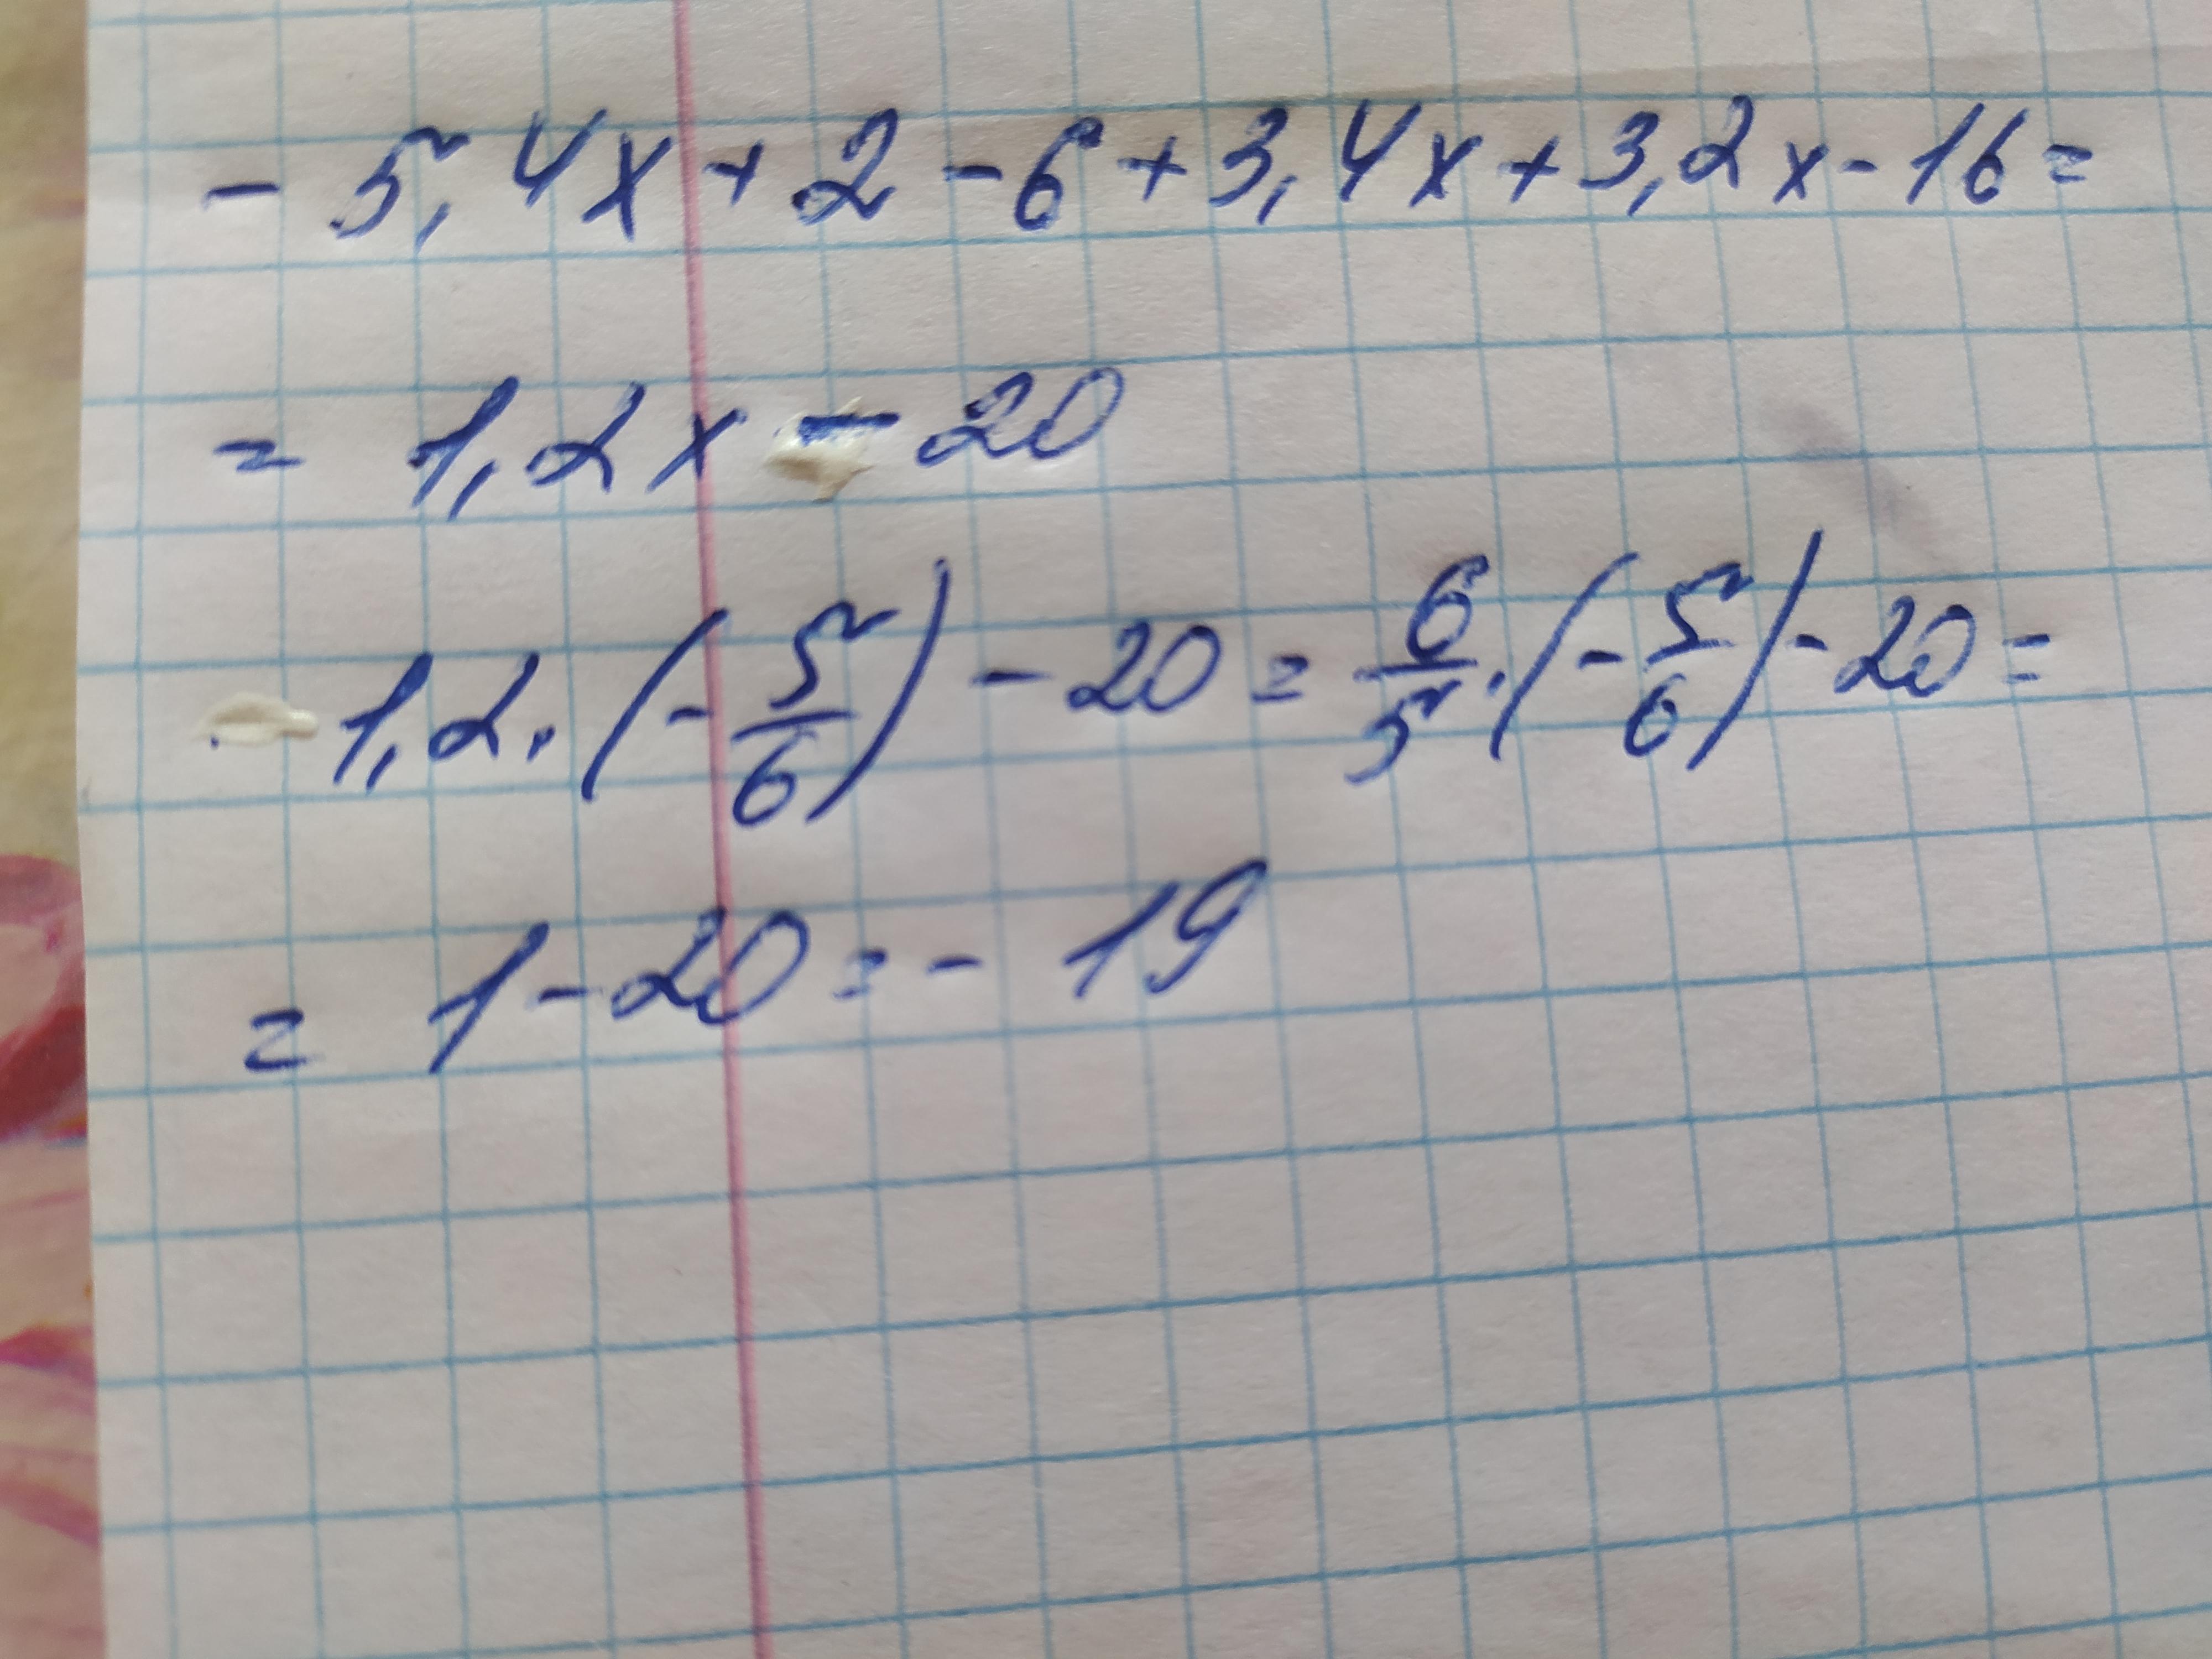 - 5,4x + 2 - 6 + 3,4x + 3,2x - 16 =
= 1,2x - 20
1,2 · (- 5/6) - 20 = 6/5 · (- 5/6) - 20 =
= 1 - 20 = - 19